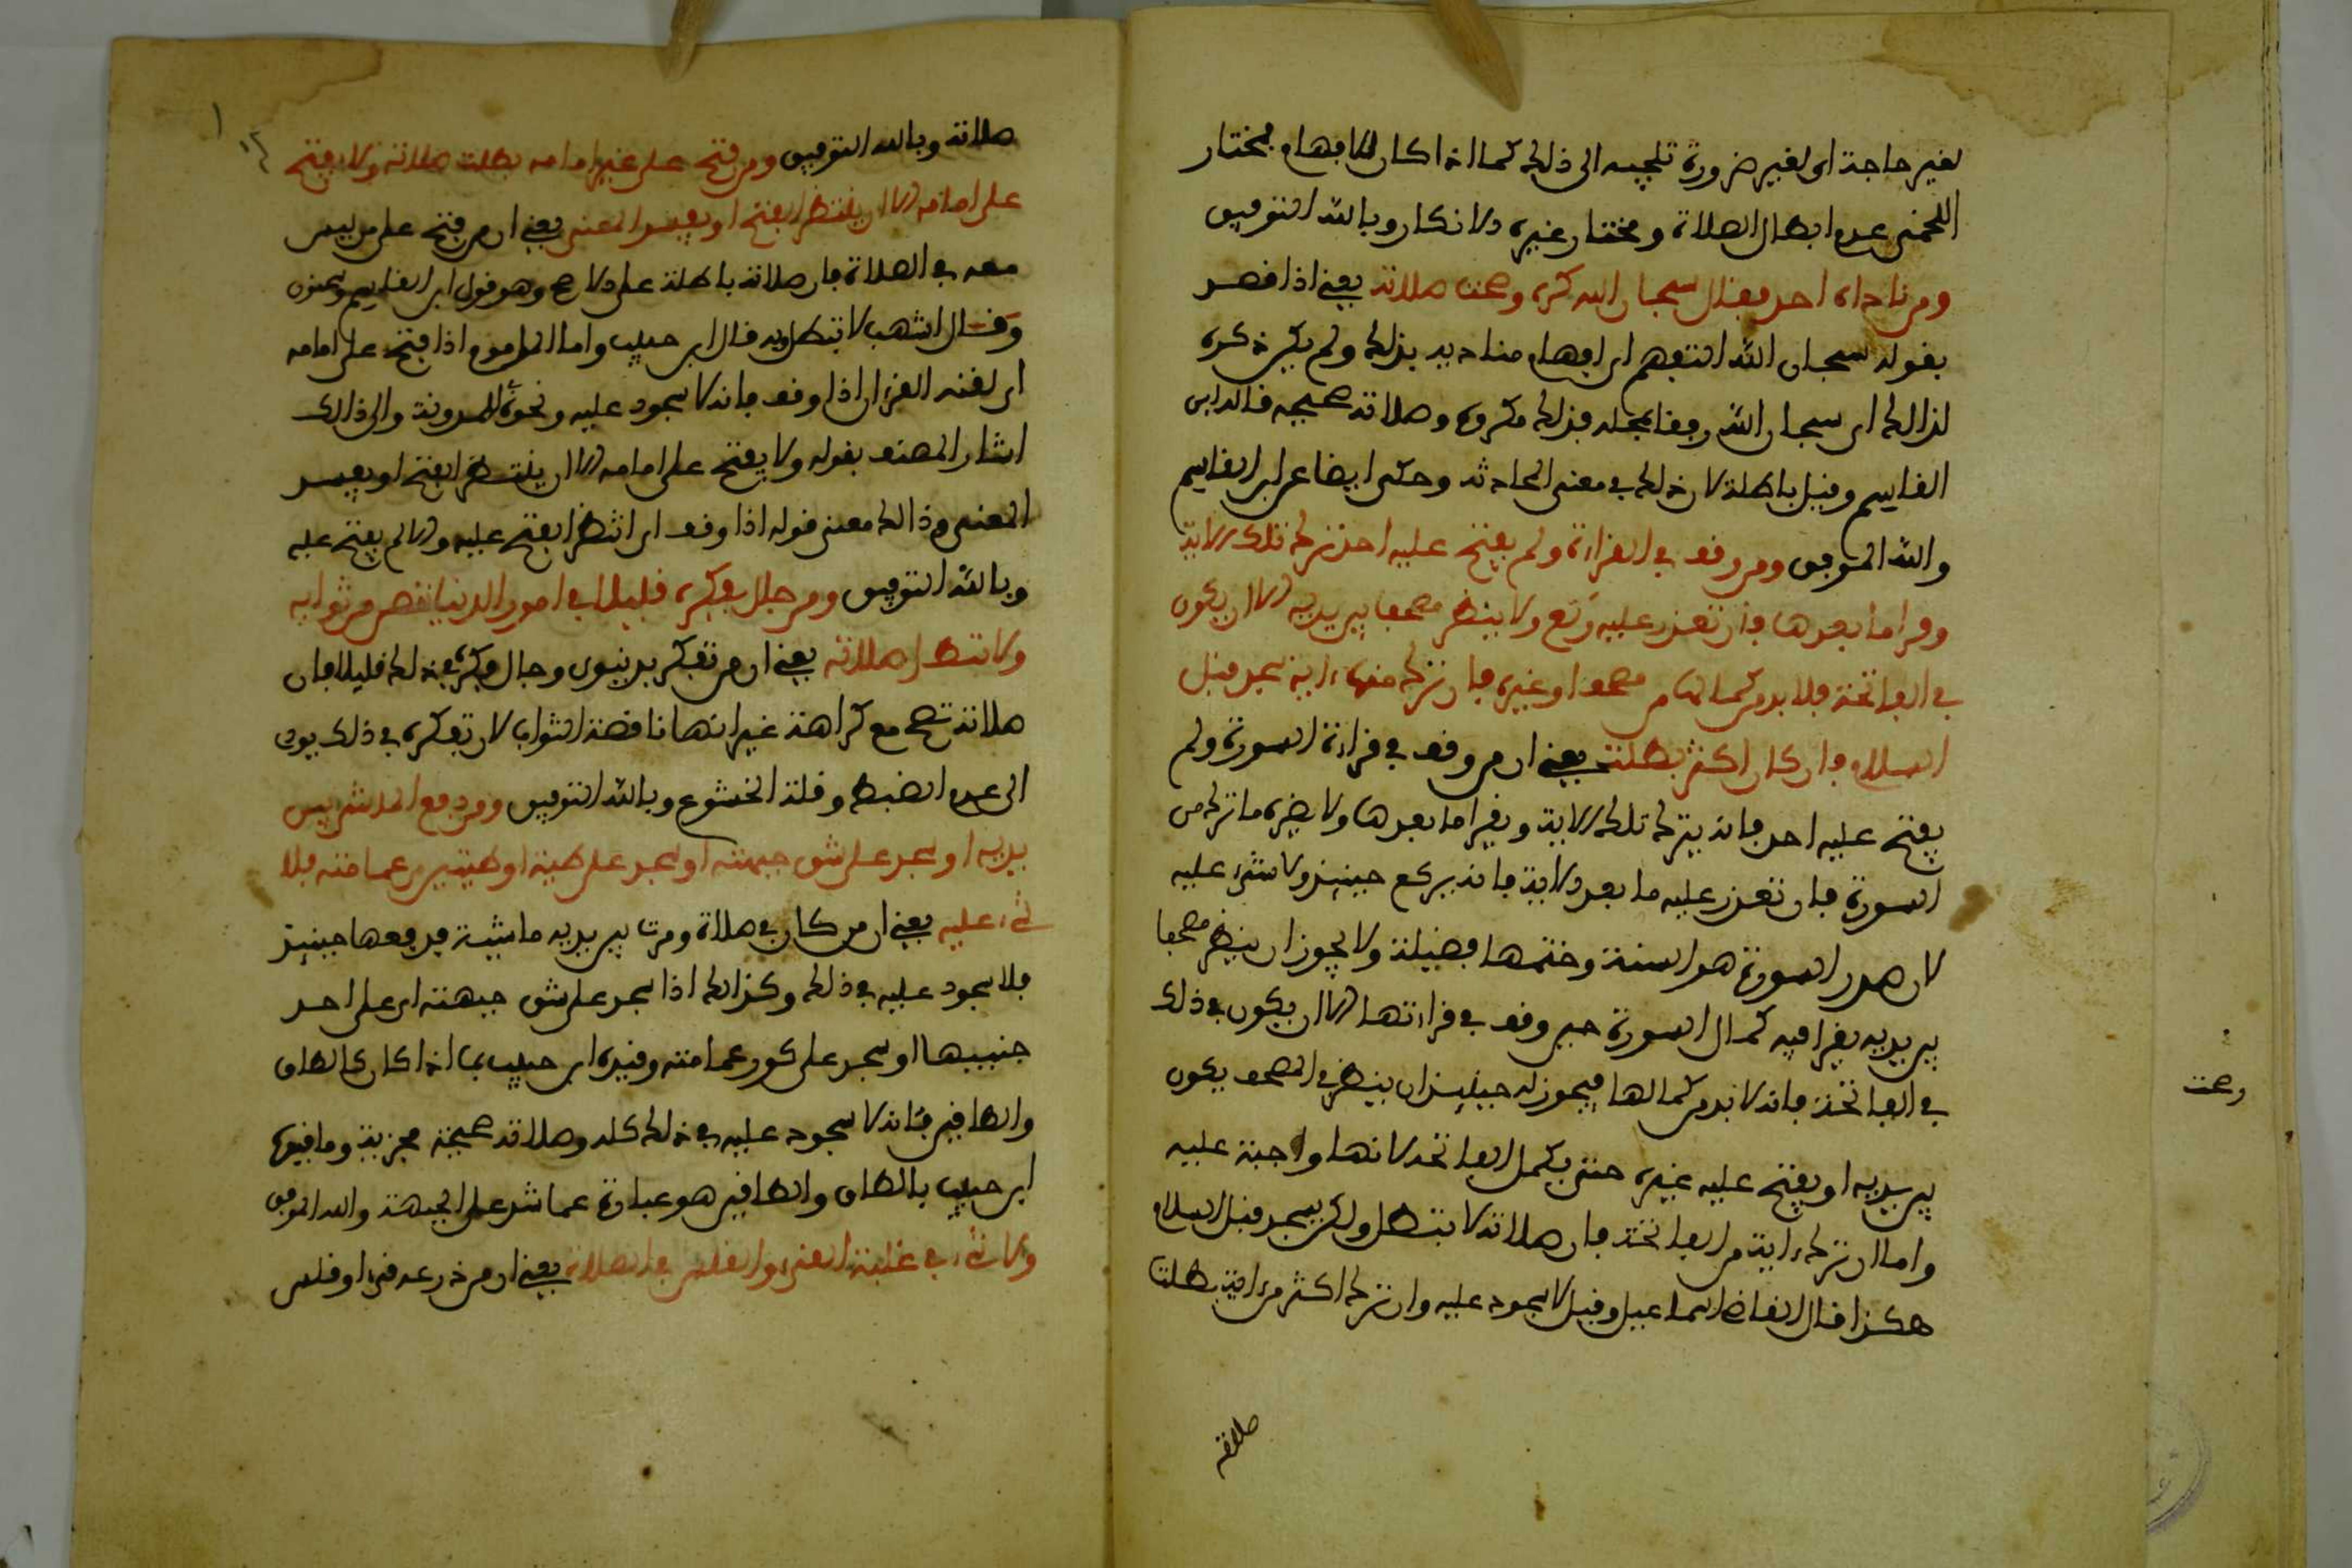 لغير حاجة اي لغير ضرورة تلجيه الى ذلك كما اذا كان للافهام فمختار
اللخمي عدم ابطال الصلاة ومختار غيره الانكار وبالله التوفيق
ومن ناداه احد فقال سبحان الله كره وصحت صلاته يعني اذا قصد
بقوله سبحان الله التفهم اي افهام مناديه بذلك ولم يكن ذكره
لذالك اي سبحان الله رفقا بمحله فذلك مكروه وصلاته صحيحه قاله ابن
القاسم وقيل باطلة لان ذلك في معنى المحادثه وحكى ايضا عن ابن القاسم
والله الموفق ومن وقف في القراءة ولم يفتح عليه احد ترك تلك الاية
وقرا ما بعدها فان تعذر عليه ركع ولا ينظر مصحفا بين يديه الا ان يكون
في الفاتحة فلا بد من كمالها من مصحف او غيره فان ترك منها ءاية سجد قبل
السلام وان كان اكثر بطلت يعني ان من وقف في قراءة السورة ولم
يفتح عليه احد فانه يترك تلك الاية ويقرا ما بعدها ولا يضره ما ترك من
السورة فان تعذر عليه ما بعد الاية فانه يركع حينيذ ولا شيء عليه
لان صدر السورة هو السنة وختمها فضيلة ولا يجوز ان ينظر مصحفا
بين يديه يقرا فيه كمال السورة حين وقف في قراءتها الا ان يكون في ذلك
في الفاتحة فانه لا بد من كمالها فيجوز له حينيذ ان ينظر في المصحف يكون
بين يديه او يفتح عليه غيره حتى يكمل الفاتحة لانها واجبة عليه
واما ان ترك ءاية من الفاتحة فان صلاته لا تبطل ولكن يسجد قبل السلام
هكذا قال القاضي اسماعيل وقيل لا سجود عليه وان ترك اكثر من ءاية بطلت
صلاته
وصحت
صلاته وبالله التوفيق ومن فتح على غير امامه بطلت صلاته ولا يفتح
على امامه الا ان ينتظر الفتح او يفسد المعنى يعني ان من فتح على من ليس
معه في الصلاة فان صلاته باطلة على الاصح وهو قول ابن القاسم وسحنون
وقال اشهب لا تبطل وبه قال ابن حبيب واما المأموم اذا فتح على امامه
اي لقنه القرءان اذا وقف فانه لا سجود عليه ونحوه للمدونة والى ذالك
اشار المصنف بقوله ولا يفتح على امامه الا ان ينتظر الفتح او يفسد
المعنى وذالك معنى قوله اذا وقف اي انتظر الفتح عليه والا لم يفتح عليه
وبالله التوفيق ومن جال فكره قليلا في امور الدنيا نقص من ثوابه
ولا تبطل صلاته يعني ان من تفكر بدنيوي وجال فكره في ذلك قليلا فان
صلاته تصح مع كراهة غير انها ناقصة الثواب لان تفكره في ذلك يودي
الى عدم الضبط وقلة الخشوع وبالله التوفيق ومن دفع الماشي بين
يديه او سجد على شق جبهته او سجد على طية او طيتين من عمامته فلا
شيء عليه يعني ان من كان في صلاة ومرت بين يديه ماشية فدفعها حينيذ
فلا سجود عليه في ذلك وكذالك اذا سجد على شق جبهته اي على احد
جنبيها او سجد على كور عمامته وقيده ابن حبيب بما اذا كان كالطاق
والطاقين فانه لا سجود عليه في ذلك كله وصلاته صحيحة مجزية وما قيد به
ابن حبيب بالطاق والطاقين هو عبارة عما شد على الجبهة والله الموفق
ولا شيء في غلبة القيء والقلس في الصلاة يعني ان من ذرعه قيء او قلس